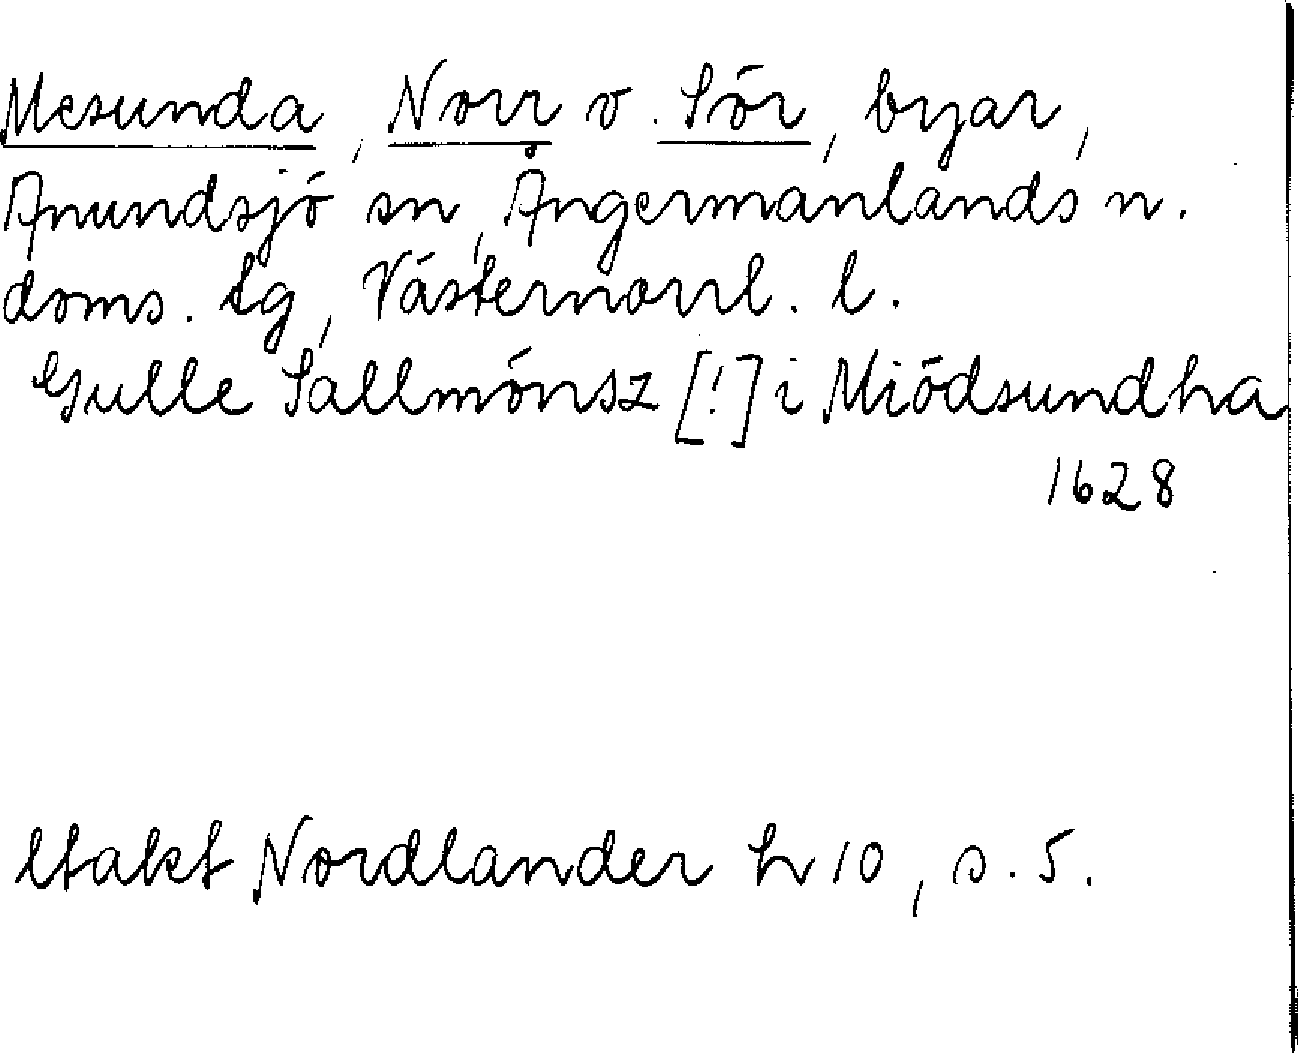 Mesunda, Norr o. Sör, byar,
Anundsjö sn, Ångermanlands n.
doms. tg, Västernorrl. l.
Gulle Sallmönsz [!] i Miödsundha
1628
ltakt Nordlander h 10, s. 5.